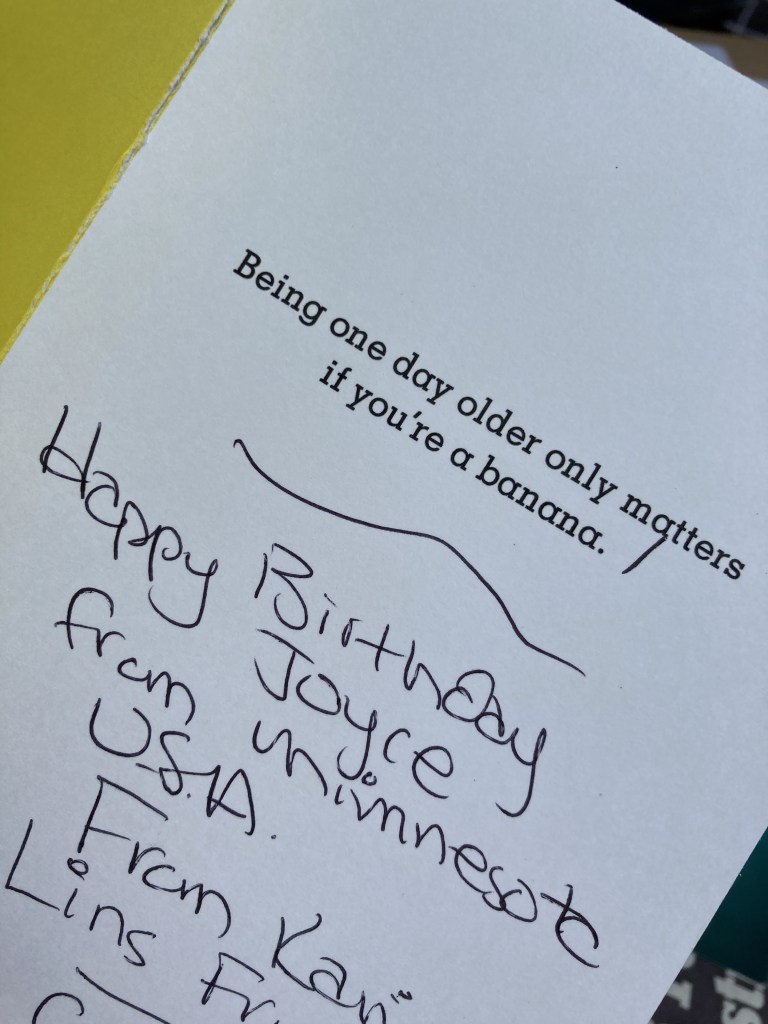 Being one day older only matters
if you're a banana.
Happy Birthday
Joyce
from Minnesota
U.S.A.
From Kari
Lins Fr